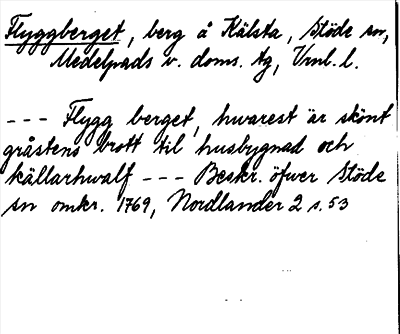 Flyggberget, berg å Kälsta, Stöde sn,
Medelpads v. doms. tg, Vnl. l.
--- Flygg berget, hwarest är skönt
gråstens brott til husbygnad och
källarhwalf --- Beskr. öfwer Stöde
sn omkr. 1769, Nordlander 2 s. 53